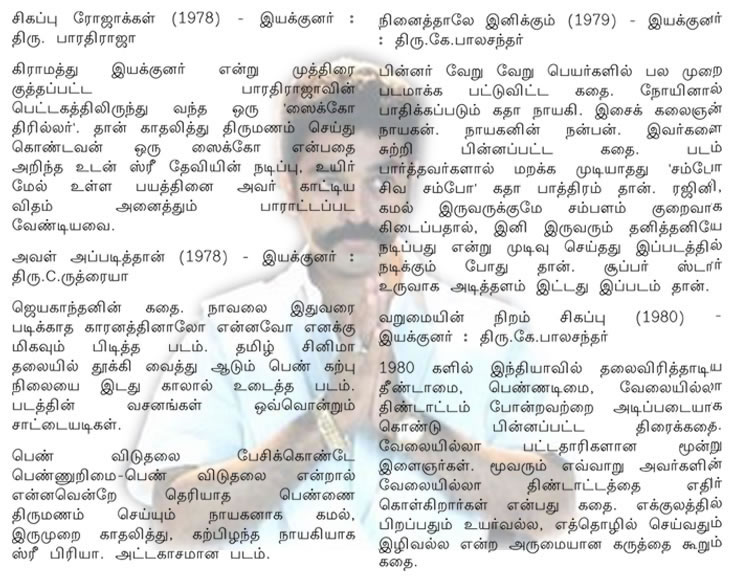 சிகப்பு ரோஜாக்கள் (1978) - இயக்குனர் :
திரு. பாரதிராஜா
கிராமத்து இயக்குனர் என்று முத்திரை
குத்தப்பட்ட பாரதிராஜாவின்
பெட்டகத்திலிருந்து வந்த ஒரு 'ஸைக்கோ
திரில்லர்'. தான் காதலித்து திருமணம் செய்து
கொண்டவன் ஒரு ஸைக்கோ என்பதை
அறிந்த உடன் ஸ்ரீ தேவியின் நடிப்பு, உயிர்
மேல் உள்ள பயத்தினை அவர் காட்டிய
விதம் அனைத்தும் பாராட்டப்பட
வேண்டியவை.
அவள் அப்படித்தான் (1978) - இயக்குனர் :
திரு.C.ருத்ரையா
ஜெயகாந்தனின் கதை. நாவலை இதுவரை
படிக்காத காரனத்தினாலோ என்னவோ எனக்கு
மிகவும் பிடித்த படம். தமிழ் சினிமா
தலையில் தூக்கி வைத்து ஆடும் பெண் கற்பு
நிலையை இடது காலால் உடைத்த படம்.
படத்தின் வசனங்கள் ஒவ்வொன்றும்
சாட்டையடிகள்.
பெண் விடுதலை பேசிக்கொண்டே
பெண்ணுறிமை-பெண் விடுதலை என்றால்
என்னவென்றே தெரியாத பெண்ணை
திருமணம் செய்யும் நாயகனாக கமல்,
இருமுறை காதலித்து, கற்பிழந்த நாயகியாக
ஸ்ரீ பிரியா. அட்டகாசமான படம்.
நினைத்தாலே இனிக்கும் (1979) - இயக்குனர்
: திரு.கே.பாலசந்தர்
பின்னர் வேறு வேறு பெயர்களில் பல முறை
படமாக்க பட்டுவிட்ட கதை. நோயினால்
பாதிக்கப்படும் கதா நாயகி. இசைக் கலைஞன்
நாயகன். நாயகனின் நன்பன். இவர்களை
சுற்றி பின்னப்பட்ட கதை. படம்
பார்த்தவர்களால் மறக்க முடியாதது 'சம்போ
சிவ சம்போ' கதா பாத்திரம் தான். ரஜினி,
கமல் இருவருக்குமே சம்பளம் குறைவாக
கிடைப்பதால், இனி இருவரும் தனித்தனியே
நடிப்பது என்று முடிவு செய்தது இப்படத்தில்
நடிக்கும் போது தான். சூப்பர் ஸ்டார்
உருவாக அடித்தளம் இட்டது இப்படம் தான்.
வறுமையின் நிறம் சிகப்பு (1980) -
இயக்குனர் : திரு.கே.பாலசந்தர்
1980 களில் இந்தியாவில் தலைவிரித்தாடிய
தீண்டாமை, பெண்ணடிமை, வேலையில்லா
திண்டாட்டம் போன்றவற்றை அடிப்படையாக
கொண்டு பின்னப்பட்ட திரைக்கதை.
வேலையில்லா பட்டதாரிகளான மூன்று
இளைஞர்கள். மூவரும் எவ்வாறு அவர்களின்
வேலையில்லா திண்டாட்டத்தை எதிர்
கொள்கிறார்கள் என்பது கதை. எக்குலத்தில்
பிறப்பதும் உயர்வல்ல, எத்தொழில் செய்வதும்
இழிவல்ல என்ற அருமையான கருத்தை கூறும்
கதை.